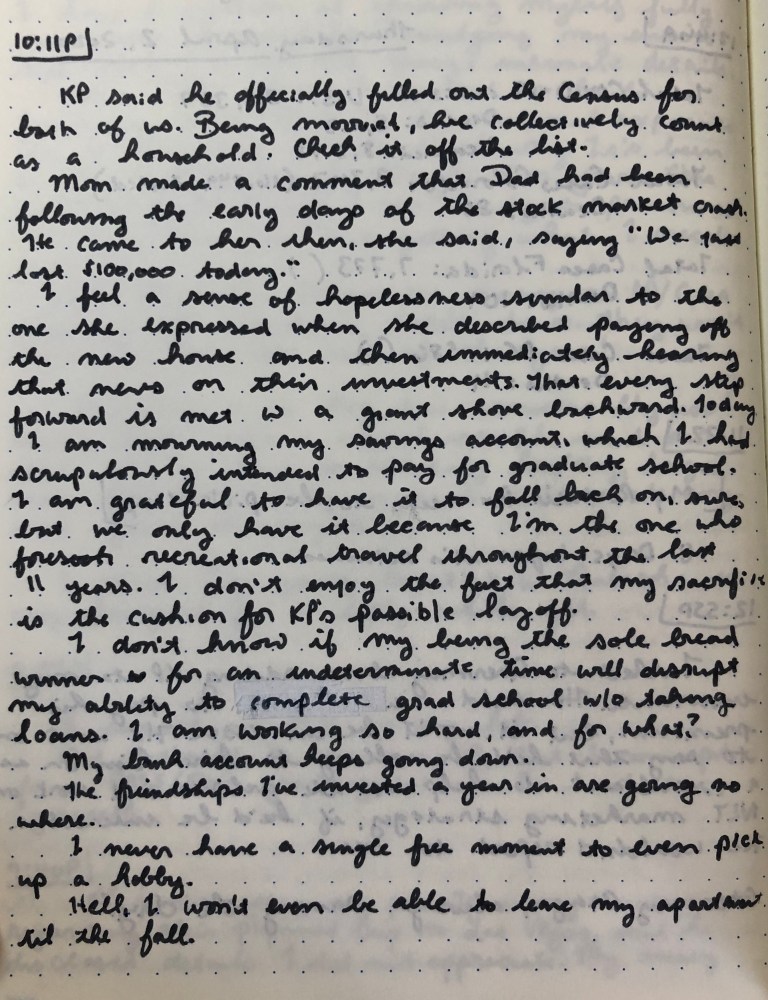 10:11P
KP said he officially filled out the Census for
both of us. Being married, we collectively count
as a household. Check it off the list.
Mom made a comment that Dad had been
following the early days of the stock market crash.
He came to her then, she said, saying "We just
lost $100,000 today."
I feel a sense of hopelessness similar to the
one she expressed when she described paying off
the new house and then immediately hearing
that news on their investments. That every step
forward is met w a giant shove backward. Today
I am mourning my savings account, which I had
scrupulously intended to pay for graduate school.
I am grateful to have it to fall back on, sure,
but we only have it because I'm the one who
forsook recreational travel throughout the last
11 years. I don't enjoy the fact that my sacrifice
is the cushion for KP's possible layoff.
I don't know if my being the sole bread
winner for an indeterminate time will disrupt
my ability to complete grad school w/o taking
loans. I am working so hard, and for what?
My bank account keeps going down.
The friendships I've invested a year in are going no
where.
I never have a single free moment to even pick
up a hobby.
Hell, I won't even be able to leave my apartment
til the fall.